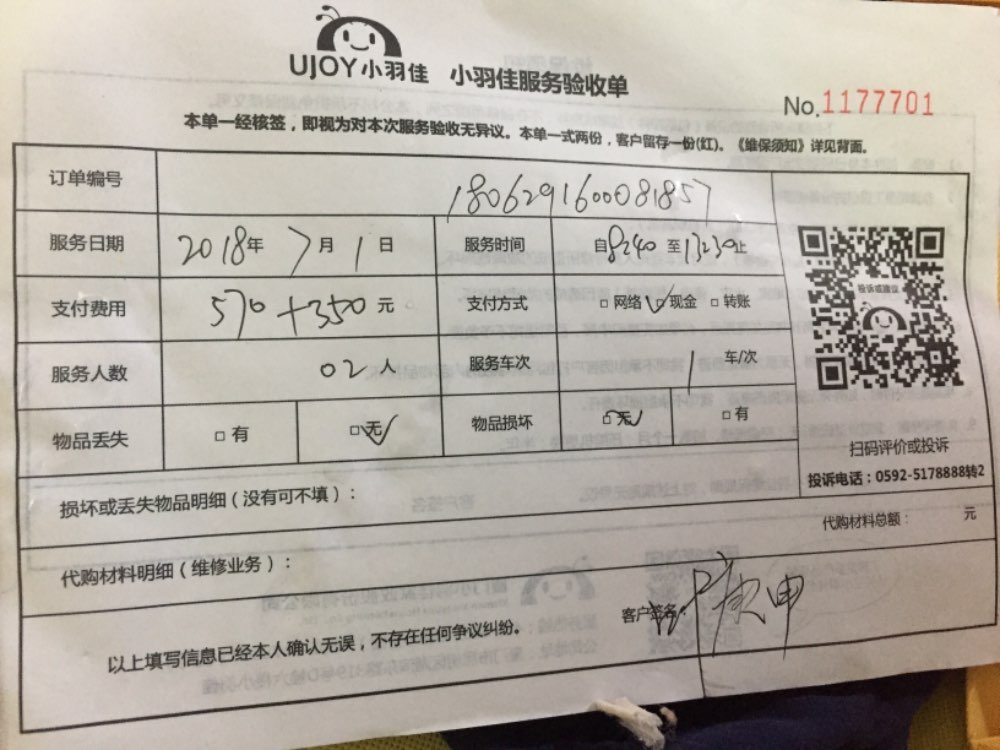 UJOY小羽佳 小羽佳服务验收单
No.1177701
本单一经核签，即视为对本次服务验收无异议。本单一式两份，客户留存一份(红)。《维保须知》详见背面。
订单编号 180629160081857
服务日期 2018年7月1日 服务时间 自8:40至13:30止
支付费用 570+350元 支付方式 □网络 □现金 □转账
服务人数 02人 服务车次 1 车/次
物品丢失 □有 □无 物品损坏 □无 □有
投诉或建议
扫码评价或投诉
投诉电话：0592-5178888转2
损坏或丢失物品明细（没有可不填）：
代购材料总额： 元
代购材料明细（维修业务）：
客户签名：
以上填写信息已经本人确认无误，不存在任何争议纠纷。